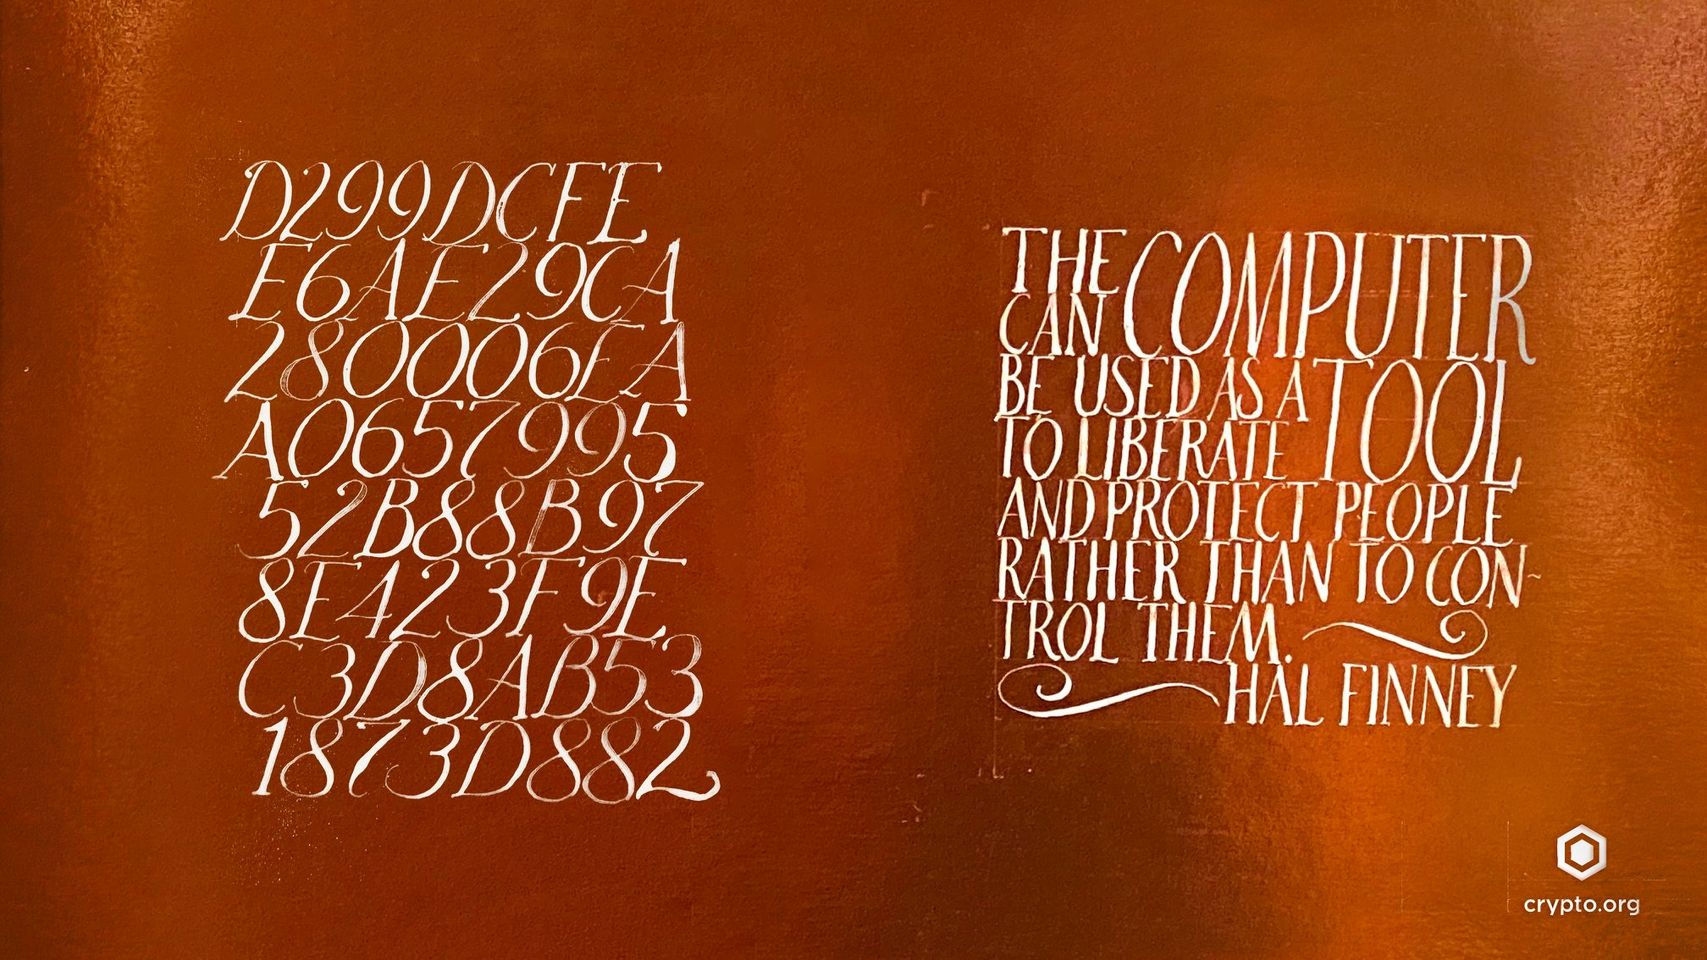 D299DCFE
E6AE29CA
280006EA
A0657995
52B88B97
8E423F9E
C3D8AB53
1873D882
THE COMPUTER
CAN
BE USED AS A TOOL
TO LIBERATE
AND PROTECT PEOPLE
RATHER THAN TO CON-
TROL THEM.
HAL FINNEY
crypto.org